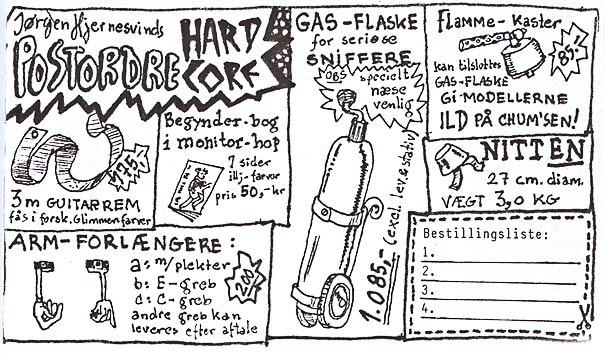 Jørgen Hjernesvinds
POSTORDRE
HARD
CORE
3m GUITARREM
fås i forsk. Glimmerfarver
175,-
Begynder-bog
i monitor-hop
7 sider
ill,-farver
pris 50,-kr
ARM-FORLÆNGERE:
a: m/plekter
b: E-greb
d: C-greb
andre greb kan
leveres efter aftale
200,-
GAS-FLASKE
for seriøse
SNIFFERE
OBS
specielt
næse
venlig
1.085,- (excl. lev. & stativ)
Flamme-Kaster
85,-
kan tilsluttes
GAS-FLASKE
GI-MODELLERNE
ILD PÅ CHUM'SEN!
NITTEN
27 cm. diam.
VÆGT 3,0 KG
Bestillingsliste:
1.
2.
3.
4.